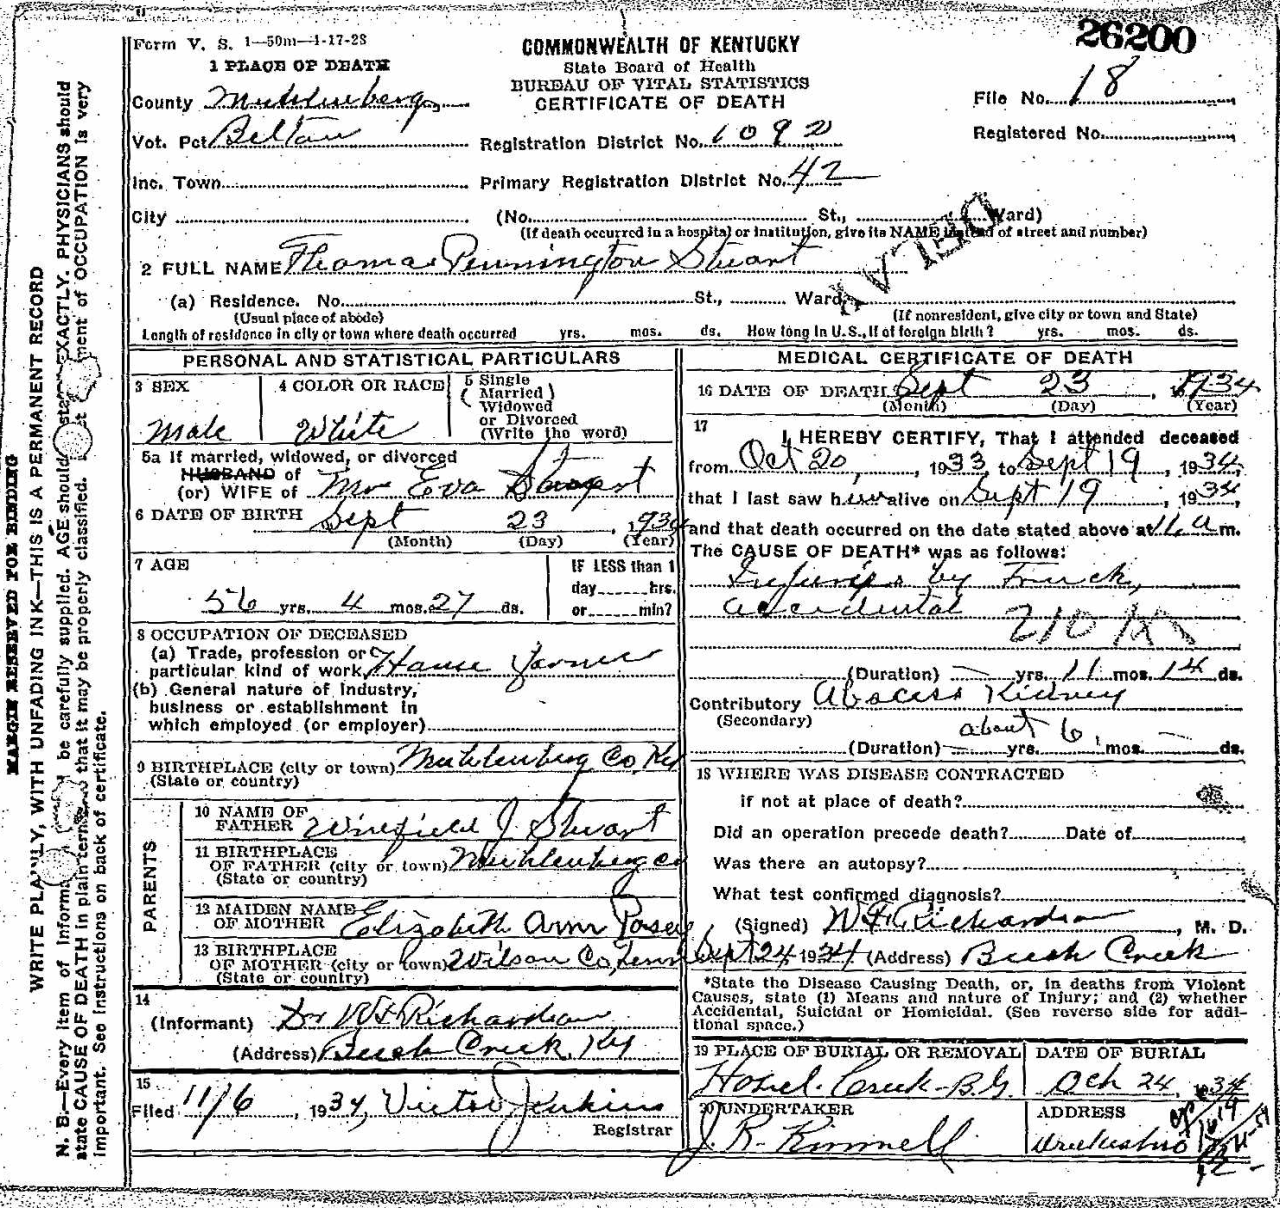 Form V. S. 1—50m—1-17-28
26200
COMMONWEALTH OF KENTUCKY
State Board of Health
BUREAU OF VITAL STATISTICS
CERTIFICATE OF DEATH
File No. 18
Registered No.
1 PLACE OF DEATH
County Muhlenberg
Vot. Pct Belton
Registration District No. 1092
Inc. Town
Primary Registration District No. 42
City
(No. St., Ward)
(If death occurred in a hospital or institution, give its NAME instead of street and number)
DELAY
2 FULL NAME Thomas Pennington Stuart
(a) Residence. No. St., Ward
(Usual place of abode)
(If nonresident, give city or town and State)
Length of residence in city or town where death occurred yrs. mos. ds. How long in U.S., if of foreign birth? yrs. mos. ds.
PERSONAL AND STATISTICAL PARTICULARS
3 SEX
Male
4 COLOR OR RACE
White
5 Single
Married
Widowed
or Divorced
(Write the word)
5a If married, widowed, or divorced
HUSBAND of
(or) WIFE of Mrs Eva
6 DATE OF BIRTH Sept 23, 1934
(Month) (Day) (Year)
7 AGE
56 yrs. 4 mos. 27 ds.
IF LESS than 1
day hrs.
or min?
8 OCCUPATION OF DECEASED
(a) Trade, profession or
particular kind of work
(b) General nature of Industry,
business or establishment in
which employed (or employer)
9 BIRTHPLACE (city or town) Muhlenberg Co, Ky
(State or country)
PARENTS
10 NAME OF
FATHER Winfield J. Stuart
11 BIRTHPLACE
OF FATHER (city or town) Muhlenberg Co
(State or country)
12 MAIDEN NAME
OF MOTHER Elizabeth Ann Posey
13 BIRTHPLACE
OF MOTHER (city or town) Wilson Co, Tenn
(State or country)
14
(Informant) Dr W H Richardson
(Address) Beech Creek, Ky
15
Filed 11/6, 1934, Victor Jenkins
Registrar
MEDICAL CERTIFICATE OF DEATH
16 DATE OF DEATH Sept 23, 1934
(Month) (Day) (Year)
17
I HEREBY CERTIFY, That I attended deceased
from Oct 20, 1933, to Sept 19, 1934,
that I last saw him alive on Sept 19, 1934,
and that death occurred on the date stated above at m.
The CAUSE OF DEATH* was as follows:
Injuries by Truck,
accidental
210
(Duration) yrs. 11 mos. 14 ds.
Contributory Abscess Kidney
(Secondary)
about 6,
(Duration) yrs. mos. ds.
18 WHERE WAS DISEASE CONTRACTED
if not at place of death?
Did an operation precede death? Date of
Was there an autopsy?
What test confirmed diagnosis?
(Signed) W H Richardson, M. D.
Sept 24 1934 (Address) Beech Creek
*State the Disease Causing Death, or, in deaths from Violent
Causes, state (1) Means and nature of Injury; and (2) whether
Accidental, Suicidal or Homicidal. (See reverse side for addi-
tional space.)
19 PLACE OF BURIAL OR REMOVAL
Hazel Creek B.G.
DATE OF BURIAL
Oct 24, 34
20 UNDERTAKER
J. R. Kimmell
ADDRESS
MARGIN RESERVED FOR BINDING
WRITE PLAINLY, WITH UNFADING INK—THIS IS A PERMANENT RECORD
N. B.—Every item of informa be carefully supplied. AGE should state EXACTLY. PHYSICIANS should
state CAUSE OF DEATH in plain terms, so that it may be properly classified. ment of OCCUPATION is very
important. See instructions on back of certificate.